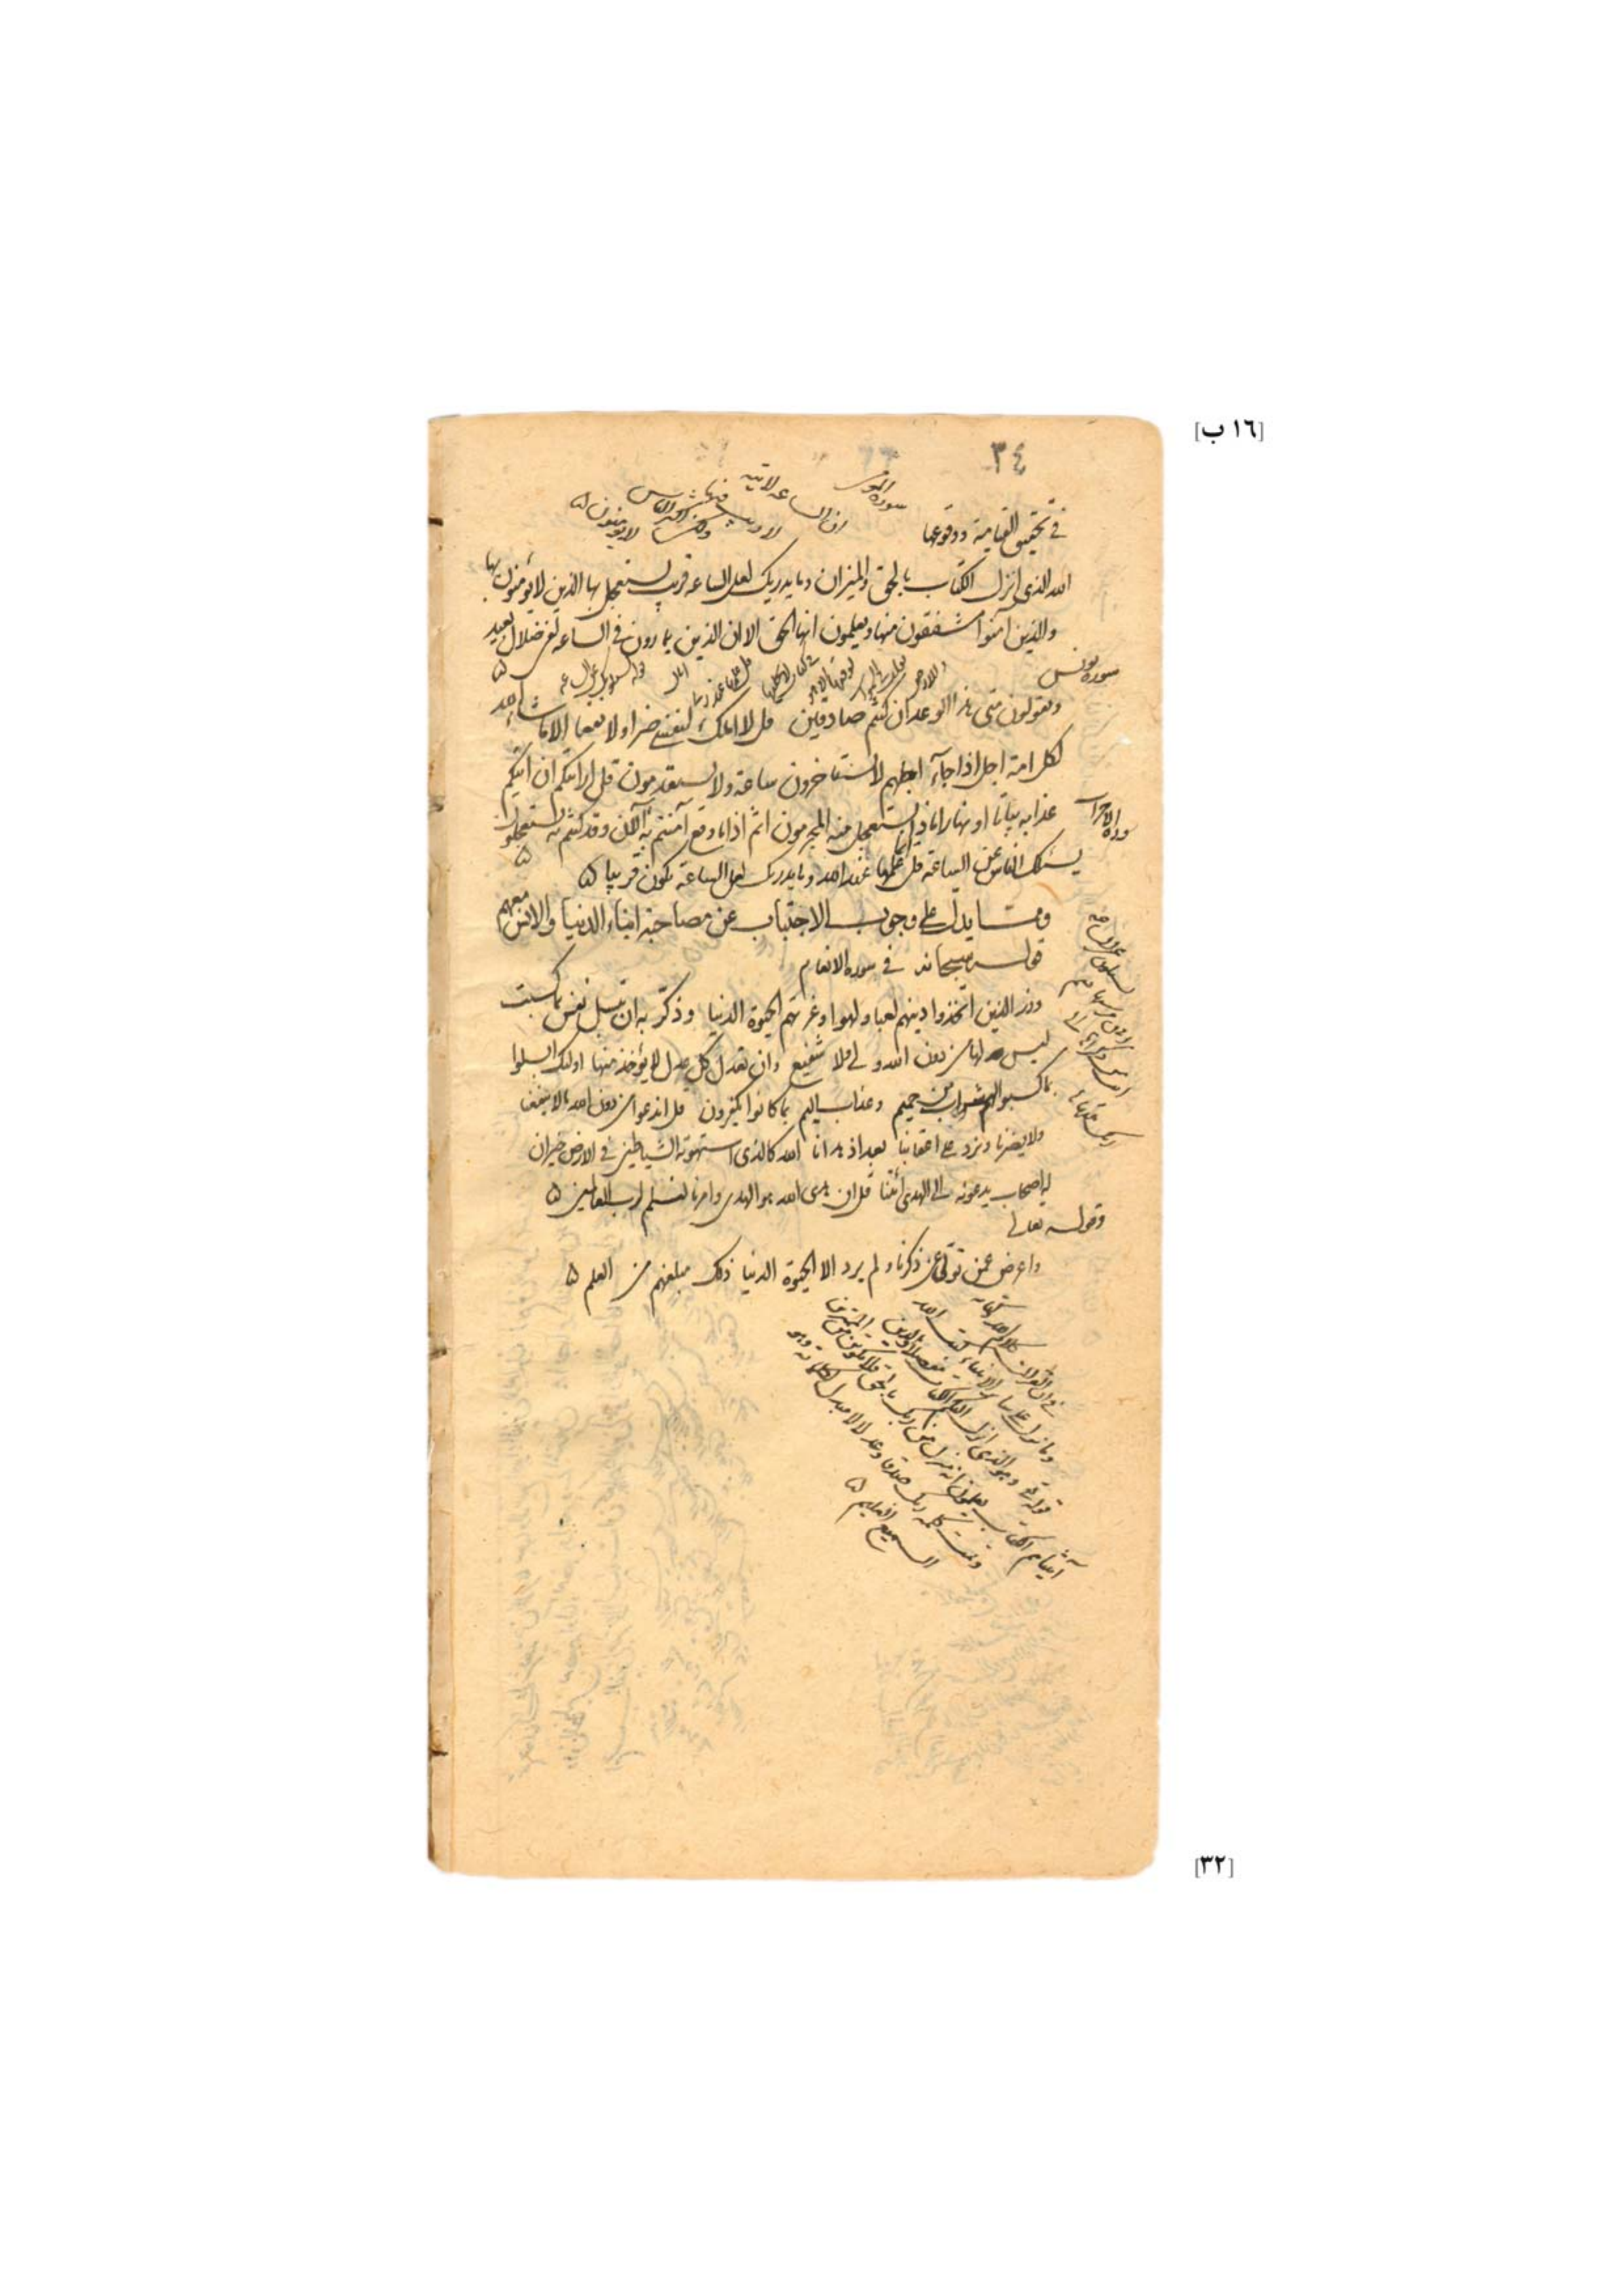 [١٦ ب]
٣٤
في تحقيق القيامة ووقوعها
سوره المؤمن
ان الساعه لاتيه
لا ريب فيها
ولكن اكثر الناس
لا يؤمنون ۵
الله الذى انزل الكتاب بالحق والميزان وما يدريك لعل الساعه قريب يستعجل بها الذين لا يؤمنون بها
والذين آمنوا مشفقون منها ويعلمون انها الحق الا ان الذين يمارون في الساعه لفى ضلال بعيد ۵
سوره يونس
ويقولون متى هذا الوعد ان كنتم صادقين قل لا املك لنفسى ضرا ولا نفعا الا ما شاء الله
لكل امة اجل اذا جآء اجلهم لا يستاخرون ساعة ولا يستقدمون قل ارايتكم ان اتيكم
عذابه بياتا او نهارا ماذا يستعجل منه المجرمون اثم اذا ما وقع آمنتم به آلآن وقد كنتم به تستعجلون ۵
سورة الاحزاب
يسئلك الناس عن الساعة قل انما علمها عند الله وما يدريك لعل الساعة تكون قريبا ۵
ومما يدل على وجوب الاجتناب عن مصاحبة ابناء الدنيا والانس معهم
قوله سبحانه في سوره الانعام
وذر الذين اتخذوا دينهم لعبا ولهوا وغرتهم الحيوة الدنيا وذكّر به ان تبسل نفس بما كسبت
ليس لها من دون الله ولى ولا شفيع وان تعدل كل عدل لا يؤخذ منها اولئك الذين ابسلوا
بما كسبوا لهم شراب من حميم وعذاب اليم بما كانوا يكفرون قل اندعوا من دون الله ما لا ينفعنا
ولا يضرنا ونرد على اعقابنا بعد اذ هدانا الله كالذى استهوته الشياطين في الارض حيران
له اصحاب يدعونه الى الهدى ائتنا قل ان هدى الله هو الهدى وامرنا لنسلم لرب العالمين ۵
وقوله تعالى
واعرض عمن تولى عن ذكرنا ولم يرد الا الحيوة الدنيا ذلك مبلغهم من العلم ۵
وهو الذى انزل اليكم الكتاب مفصلا والذين
آتيناهم الكتاب يعلمون انه منزل من ربك بالحق فلا تكونن من الممترين
وتمت كلمة ربك صدقا وعدلا لا مبدل لكلماته وهو
السميع العليم ۵
[٣٢]